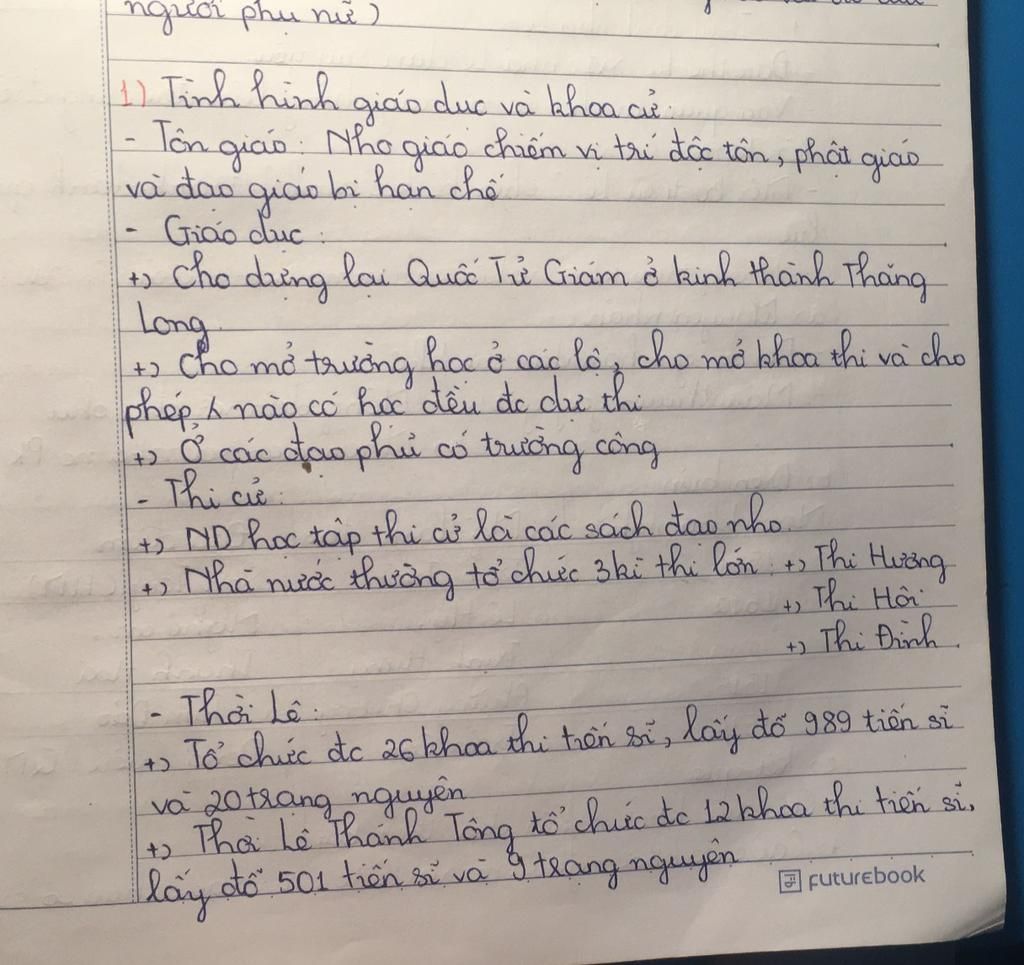 người phụ nữ)
1) Tình hình giáo dục và khoa cử:
- Tôn giáo: Nho giáo chiếm vị trí độc tôn, phật giáo
và đạo giáo bị hạn chế
- Giáo dục:
+) Cho dựng lại Quốc Tử Giám ở kinh thành Thăng
Long
+) Cho mở trường học ở các lộ, cho mở khoa thi và cho
phép nào có học đều đc dự thi
+) Ở các đạo phủ có trường công
- Thi cử:
+) ND học tập thi cử là các sách đạo nho.
+) Nhà nước thường tổ chức 3 kì thi lớn: +) Thi Hương
+) Thi Hội
+) Thi Đình.
- Thời Lê:
+) Tổ chức đc 26 khoa thi tiến sĩ, lấy đỗ 989 tiến sĩ
và 20 trạng nguyên
+) Thời Lê Thánh Tông tổ chức đc 12 khoa thi tiến sĩ,
lấy đỗ 501 tiến sĩ và 9 trạng nguyên
FUTUREBOOK